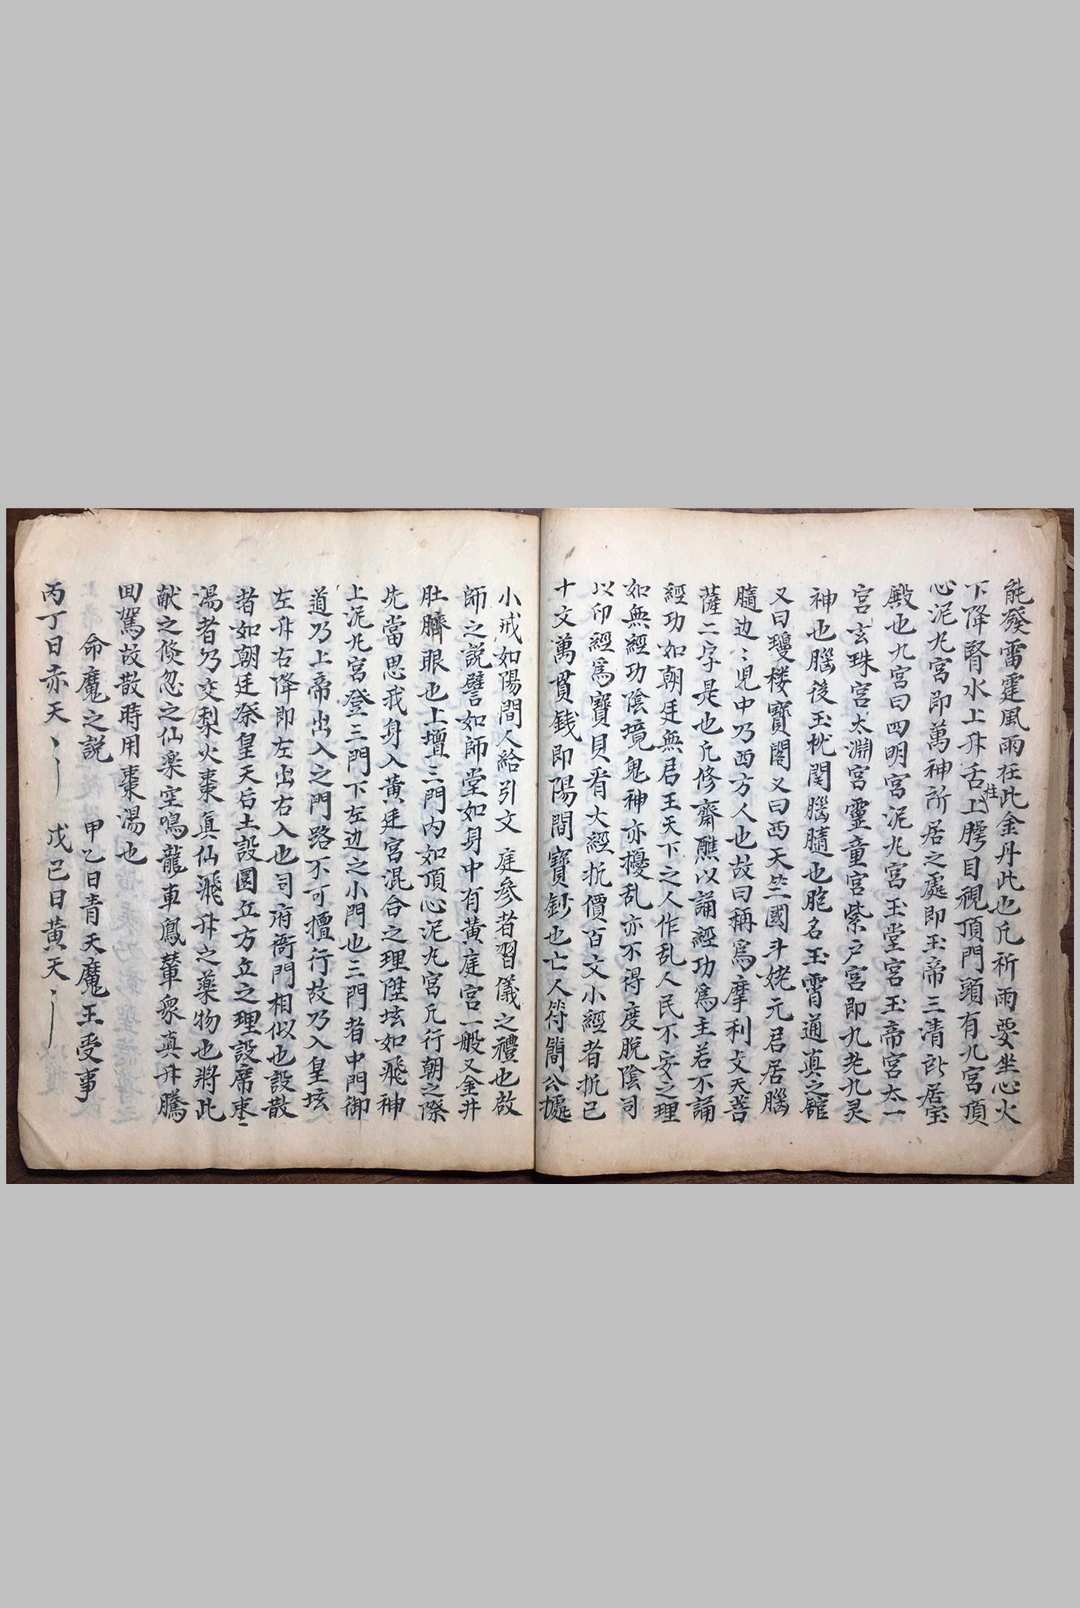 能發雷霆風雨在此金丹此也凢祈雨要坐心火
下降腎水上升舌拄上腭目視頂門頭有九宮頂
心泥丸宮即萬神所居之處即玉帝三清所居宝
殿也九宮曰四明宮泥丸宮玉堂宮玉帝宮太一
宮玄珠宮太淵宮靈童宮紫户宮即九老九灵
神也腦後玉枕関腦髓也胞名玉霄通真之館
又曰瓊楼寶閣又曰西天竺國斗姥元君居腦
髓边〻児中乃西方人也故曰稱為摩利攴天菩
薩二字是也凢修齋醮以誦經功為主若不誦
經功如朝廷無君王天下之人作乱人民不安之理
如無經功陰境鬼神亦擾乱亦不得度脫陰司
以印經為寶貝看大經抗價百文小經者抗已
十文萬貫銭即陽間寶鈔也亡人符簡公據
小戒如陽間人給引文 庭參者習儀之禮也啟
師之説譬如師堂如身中有黃庭宮一般又金井
肚臍眼也上壇三門內如頂心泥丸宮凢行朝之際
先當思我身入黃廷宮混合之理陞垓如飛神
上泥丸宮登三門下左边之小門也三門者中門御
道乃上帝出入之門路不可擅行故乃入皇垓
左升右降即左出右入也司府衙門相似也設散
者如朝廷祭皇天后土設圜丘方丘之理設席枣〻
湯者乃交梨火棗真仙飛升之藥物也將此
献之倏忽之仙楽空鳴龍車鳳輦衆真升騰
囬駕故散時用棗湯也
命魔之説 甲乙日青天魔王受事
丙丁日赤天〻〡 戊己日黃天〻〡